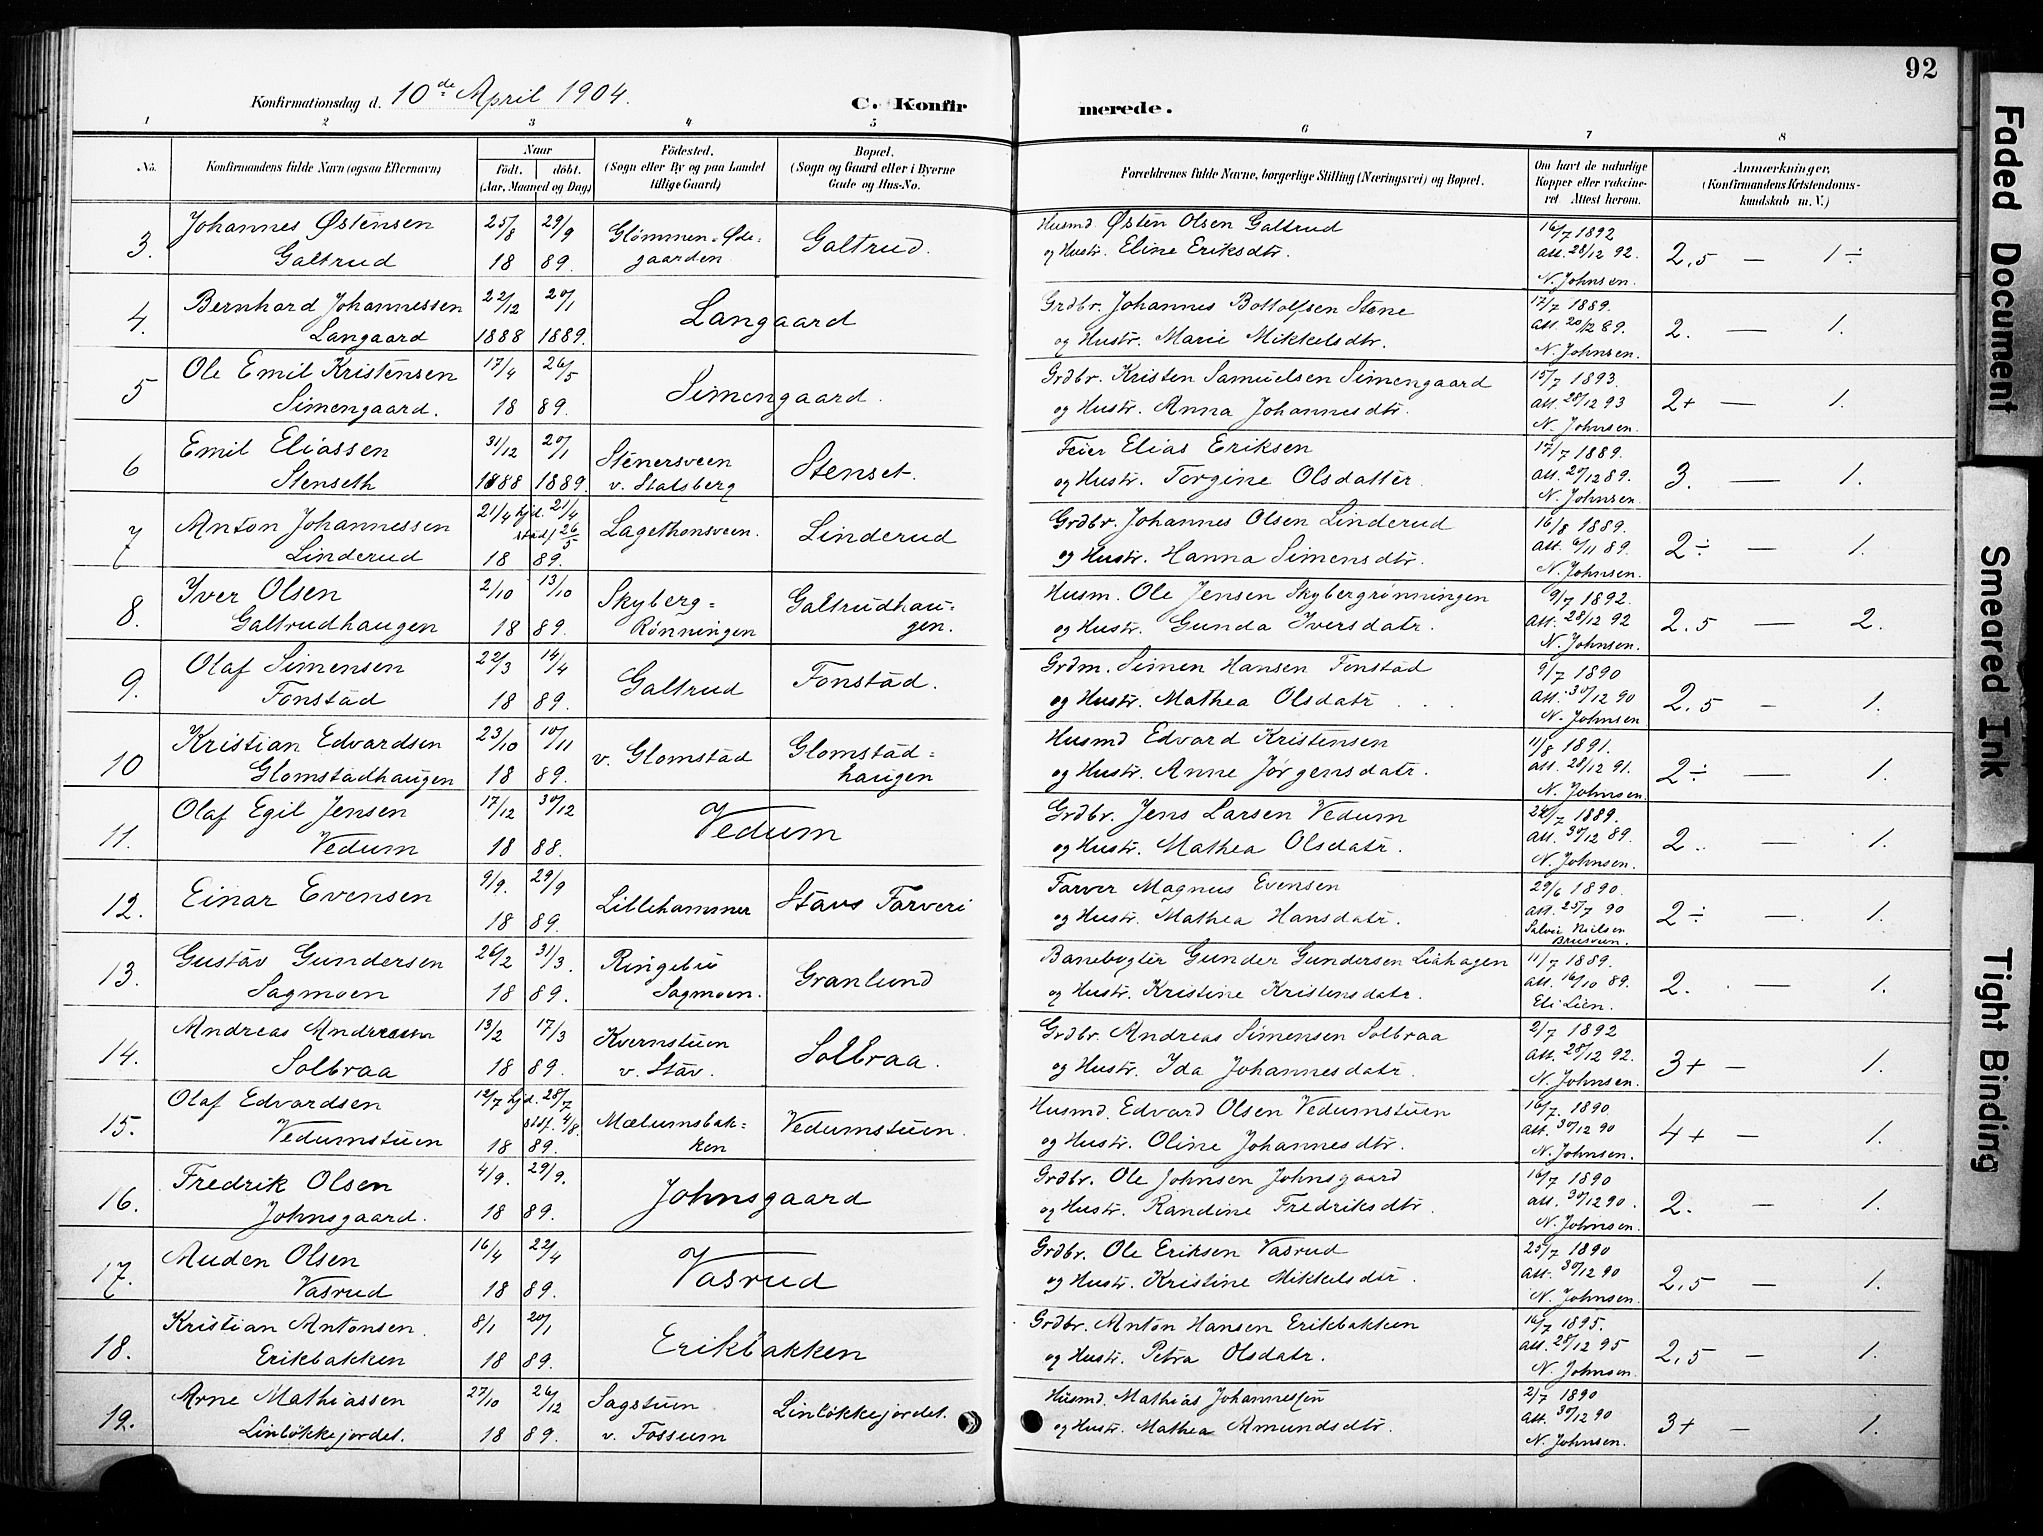 92
Konfirmationsdag d. 10de April 1904.
C. Konfirmerede.
1 2 3 4 5 6 7 8
No. Konfirmandens fulde Navn (ogsaa Efternavn) Naar født. døbt. (Aar, Maaned og Dag) Fødested. (Sogn eller By og paa Landet tillige Gaard) Bopæl. (Sogn og Gaard eller i Byerne Gade og Hus-No.
Forældrenes fulde Navne, borgerlige Stilling (Næringsvei) og Bopæl. Om havt de naturlige Kopper eller vakcineret Attest herom. Anmærkninger. (Konfirmandens Kristendomskundskab m. V.)
3. Johannes Østensen 25/8 29/9 Glømmen-Ødegaarden Galtrud. Husmd. Østen Olsen Galtrud 16/7 1892
Galtrud 18 89. og Hustr. Eline Eriksdtr. att. 28/12 92. N. Johnsen. 2,5 — 1÷
4. Bernhard Johannessen 22/12 20/1 Langaard Grdbr. Johannes Bottolfsen Stene 17/7 1889.
Langaard 1888 1889. og Hustr. Marie Mikkelsdtr. att. 20/12 89. N. Johnsen. 2. — 1.
5 Ole Emil Kristensen 17/4 26/5 Simengaard. Grdbr. Kristen Samuelsen Simengaard 15/7 1893.
Simengaard. 18 89. og Hustr. Anna Johannesdtr. att. 28/12 93 N. Johnsen. 2+ — 1.
6 Emil Eliassen 31/12 20/1 Stenersveen v. Stalsberg Stenset. Feier Elias Eriksen 17/7 1889.
Stenseth 1888 1889. og Hustr. Torgine Olsdatter. att. 20/12 89. N. Johnsen. 3. — 1.
7 Anton Johannessen 21/4 hjd. 21/4 stadf. 26/5 Lagethonsveen. Linderud Grdbr. Johannes Olsen Linderud 16/8 1889.
Linderud 18 89. og Hustr. Hanna Simensdtr. att. 6/11 89. N. Johnsen. 2÷ — 1.
8. Iver Olsen 2/10 13/10 Skyberg=Rønningen Galtrudhaugen. Husm. Ole Jensen Skybergrønningen 9/7 1892.
Galtrudhaugen 18 89. og Hustr. Gunda Iversdatr. att. 28/12 92 N. Johnsen. 2.5 — 2.
9. Olaf Simensen 22/3 14/4 Galtrud Fonstad. Grdm. Simen Hansen Fonstad 9/7 1890
Fonstad 18 89. og Hustr. Mathea Olsdatr. att. 30/12 90 N. Johnsen 2.5 — 1.
10 Kristian Edvardsen 23/10 10/11 v. Glomstad Glomstad=haugen Husmd Edvard Kristensen 11/8 1891.
Glomstadhaugen 18 89. og Hustr. Anne Jørgensdatr. att. 28/12 91. N. Johnsen. 2÷ — 1.
11. Olaf Egil Jensen 17/12 30/12 Vedum Grdbr. Jens Larsen Vedum 24/7 1889.
Vedum 18 88. og Hustr. Mathea Olsdatr. att. 30/12 89. N. Johnsen. 2. — 1.
12. Einar Evensen 9/9. 29/9 Lillehammer Stavs Farveri Farver Magnus Evensen 29/6 1890.
18 89. og Hustr. Mathea Hansdatr. att. 25/7 90 Nielsen 2÷ — 1.
13. Gustav Gundersen 26/2 31/3. Ringebu Sagmoen. Granlund Banevogter Gunder Gundersen Liahagen 11/7 1889.
Sagmoen 18 89. og Hustr. Kristine Kristensdatr. att. 16/10 89. Eli Lien. 2. — 1.
14. Andreas Andreasen 13/2 17/3 Kvernstuen v. Stav. Solbraa. Grdbr. Andreas Simensen Solbraa 2/7 1892
Solbraa 18 89. og Hustr. Ida Johannesdatr. att. 28/12 92. N. Johnsen. 3+ — 1.
15. Olaf Edvardsen 12/7 hjd. 28/7 stdf. 4/8. Mælumsbakken Vedumstuen. Husmd. Edvard Olsen Vedumstuen 16/7. 1890.
Vedumstuen 18 89. og Hustr. Oline Johannesdtr. att. 30/12 90 N. Johnsen. 4+ — 1.
16. Fredrik Olsen 4/9. 29/9. Johnsgaard Grdbr. Ole Johnsen Johnsgaard 16/7 1890
Johnsgaard. 18 89. og Hustr. Randine Fredriksdtr. att. 30/12 90. N. Johnsen. 2. — 1.
17. Auden Olsen 16/4 22/4 Vasrud Grdbr. Ole Eriksen Vasrud 25/7 1890
Vasrud 18 89. og Hustr. Kristine Mikkelsdtr. att. 30/12 90 N. Johnsen. 2,5 — 1.
18. Kristian Antonsen. 8/1 20/1 Erikbakken Grdbr. Anton Hansen Erikbakken 16/7 1895.
Erikbakken 18 89. og Hustr. Petra Olsdatr. att. 28/12 95 N. Johnsen. 2,5 — 1.
19. Arne Mathiassen 27/10 26/12 Sagstuen v. Fossum Linløkkejordet. Husmd. Mathias Johannessen 2/7 1890
Linløkkejordet. 18 89. og Hustr. Mathea Amundsdtr. att. 30/12 90 N. Johnsen. 3+ — 1.
Faded Document
Smeared Ink
Tight Binding